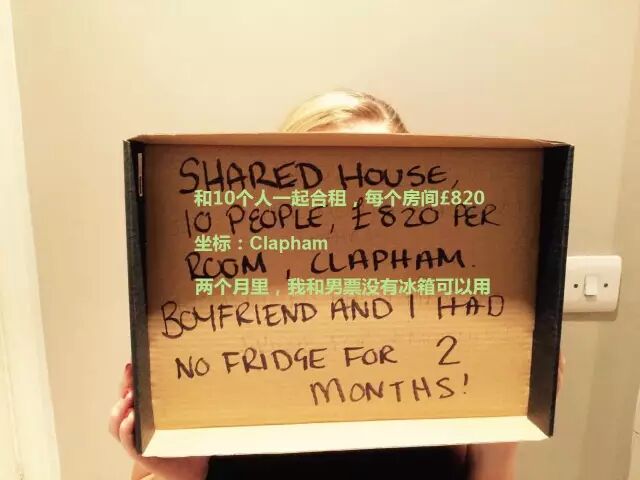 SHARED HOUSE,
和10个人一起合租，每个房间£820
10 PEOPLE, £820 PER
坐标：Clapham
ROOM, CLAPHAM.
两个月里，我和男票没有冰箱可以用
BOYFRIEND AND I HAD
NO FRIDGE FOR 2
MONTHS!